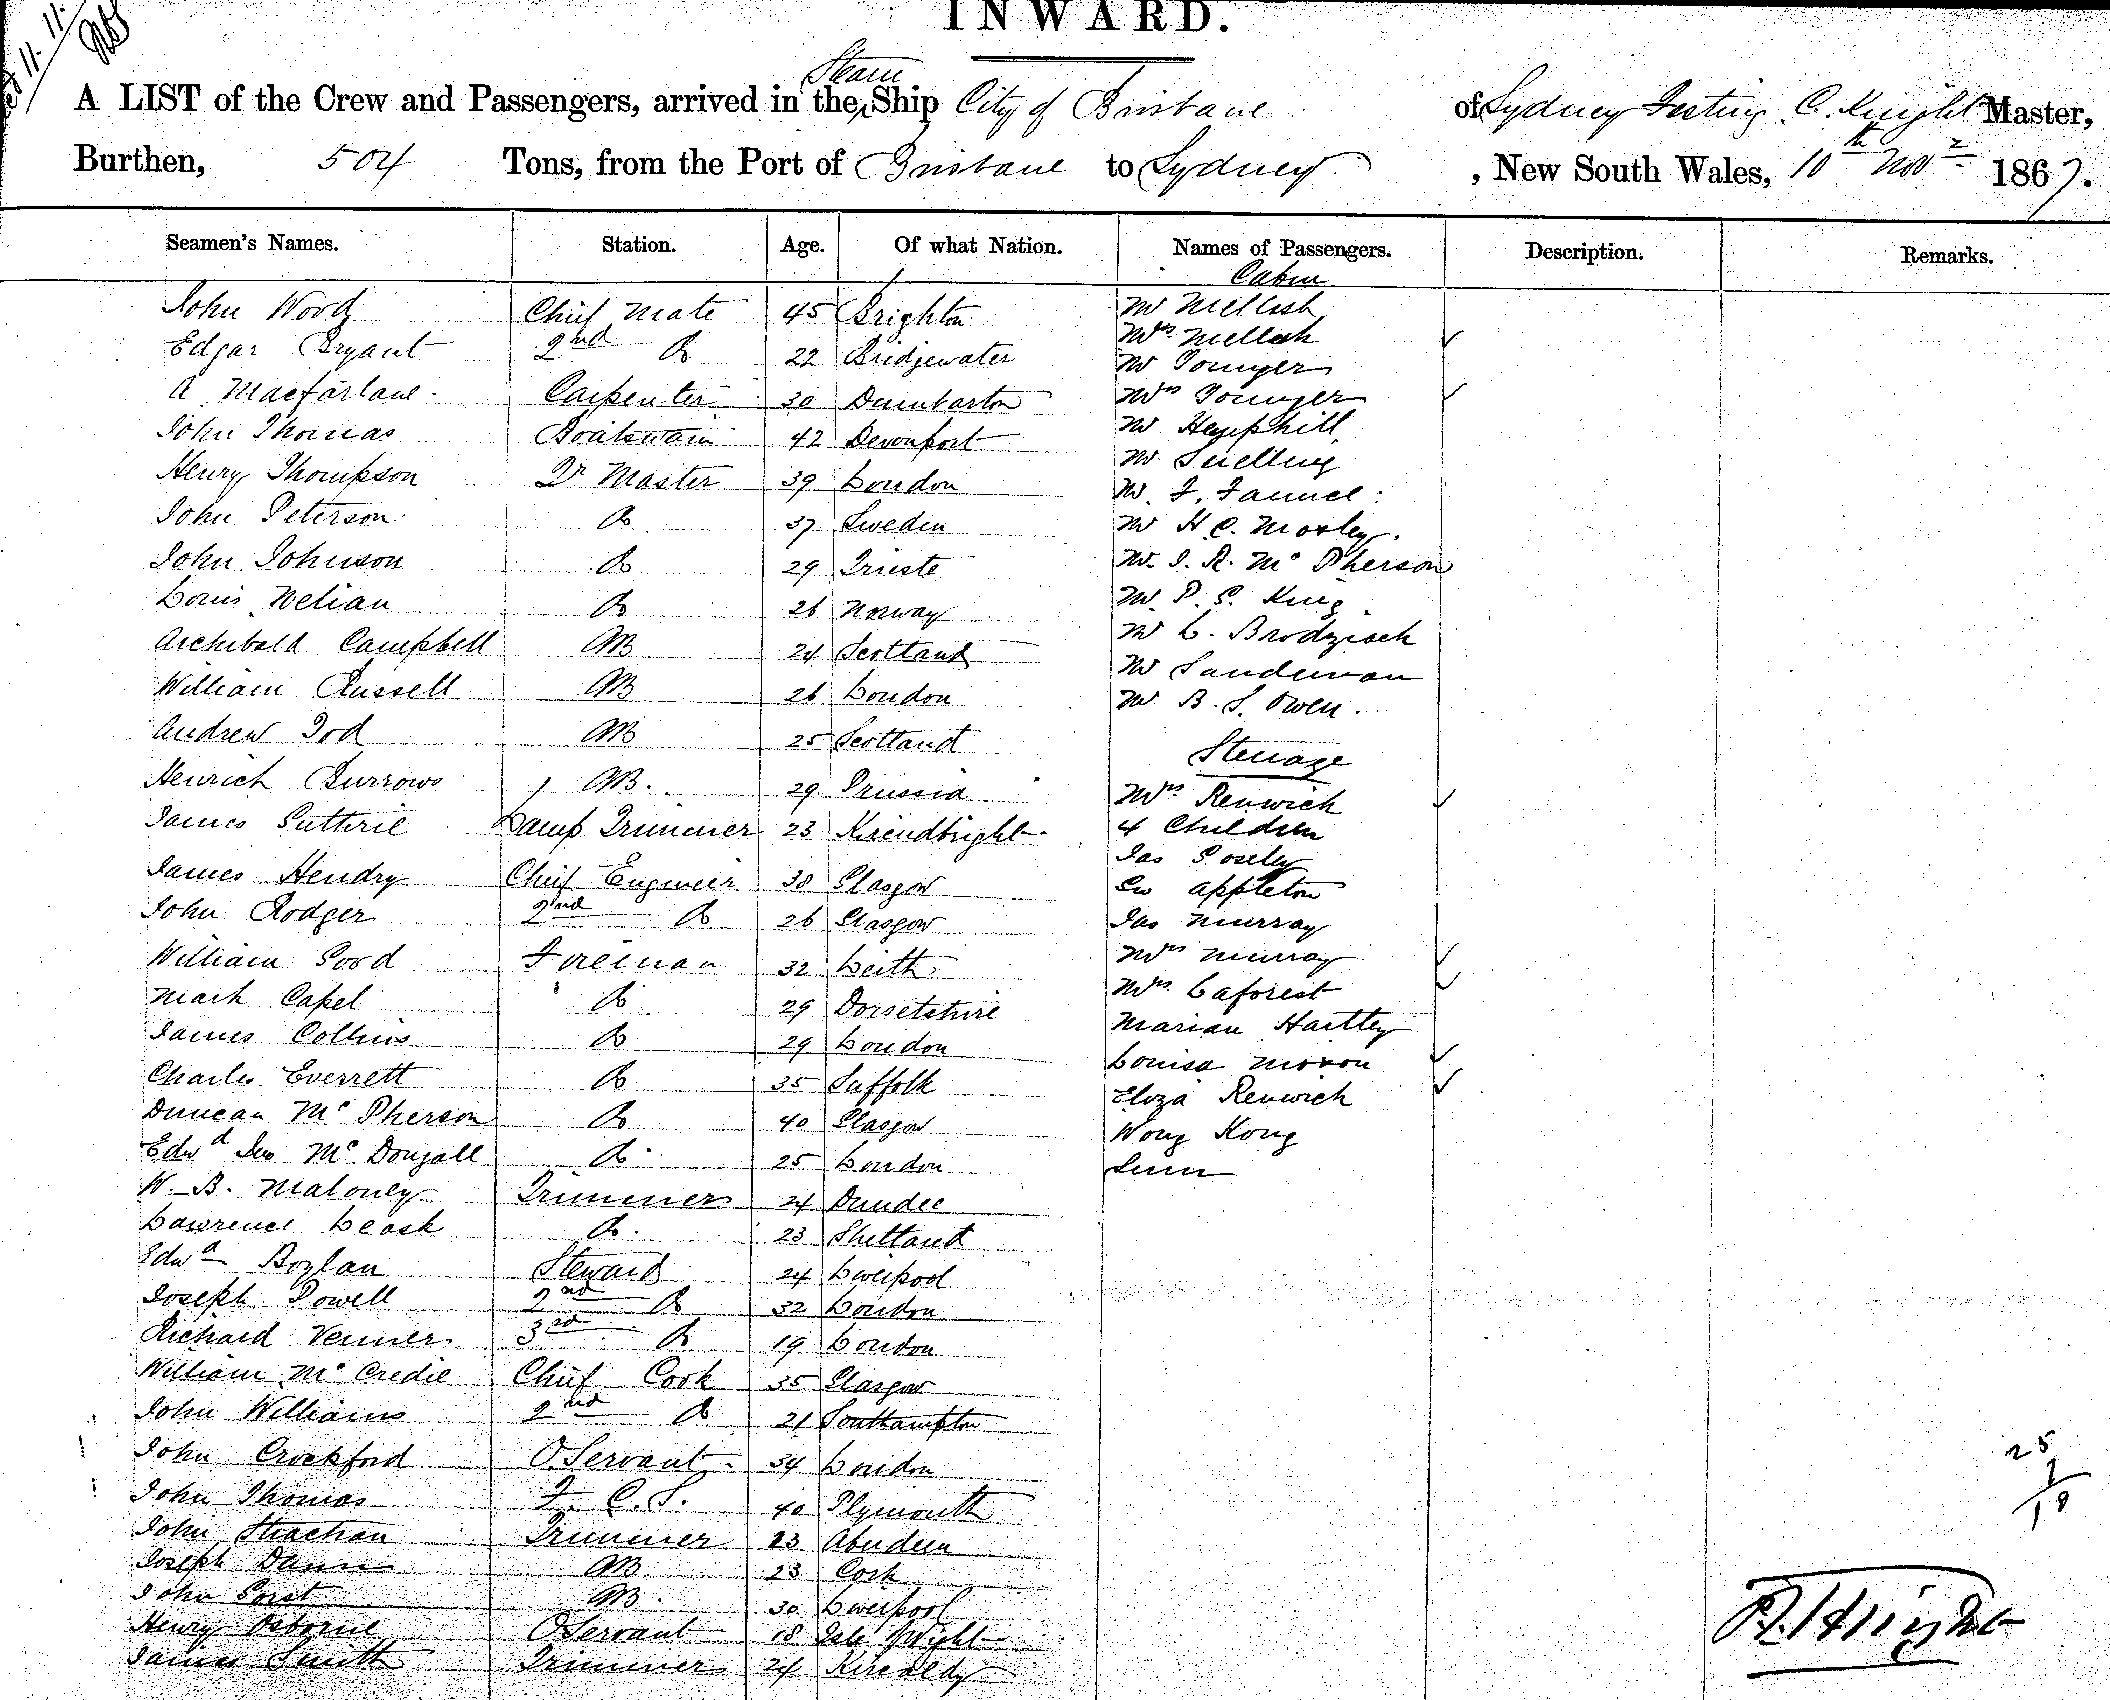 INWARD.
A LIST of the Crew and Passengers, arrived in the Steam Ship City of Brisbane of Sydney C. Knight Master,
Burthen, 504 Tons, from the Port of Brisbane to Sydney, New South Wales, 10th Novr 1867.
Seamen's Names. Station. Age. Of what Nation. Names of Passengers. Description. Remarks.
Cabin
John Wood Chief Mate 45 Brighton Mr Mellish
Edgar Bryant 2nd Do 22 Bridgewater Mrs Mellish
Mr Younger
A Macfarlane Carpenter 30 Dumbarton Mrs Younger
John Thomas Boatswain 42 Devonport Mr Hemphill
Mr Snelling
Henry Thompson Qr Master 39 London Mr F.
John Peterson Do 37 Sweden Mr H C. Mosley.
John Johnson Do 29 Trieste Mr J. R. Mc Pherson
Louis Do 26 Norway Mr P. G. King
Archibald Campbell AB 24 Scotland Mr L.
William Russell AB 26 London Mr Sandeman
Mr B. S. Owen.
Andrew Tod AB 25 Scotland
Steerage
Henrich Burrows AB. 29 Prussia Mrs Renwick
James Guthrie Lamp Trimmer 23 4 Children
Jas
James Hendry Chief Engineer 38 Glasgow Ew Appleton
John Rodger 2nd Do 26 Glasgow Jas Murray
William Good Fireman 32 Leith Mrs Murray
Mark Capel Do 29 Dorsetshire Mrs Laforest
James Collins Do 29 London Marian Hartley
Louisa Moxon
Charles Everrett Do 35 Suffolk Eliza Renwick
Duncan Mc Pherson Do 40 Glasgow Wong Kong
Edwd Mc Dougall Do 25 London
W. B. Maloney Trimmer 24 Dundee
Lawrence Leask Do 23 Shetland
Edwd Boylan Steward 24 Liverpool
Joseph Powell 2nd Do 32 London
Richard Venner 3rd Do 19 London
William Mc Credie Chief Cook 35 Glasgow
John Williams 2nd Do 21 Southampton
John Crockford O.Servant 34 London
John Thomas F. C. S. 40 Plymouth
John Strachan Trimmer 23 Aberdeen
Joseph AB 23 Cork
John AB. 30 Liverpool
Henry Osborne O Servant 18 Isle Wight
James Smith Trimmer 24
25